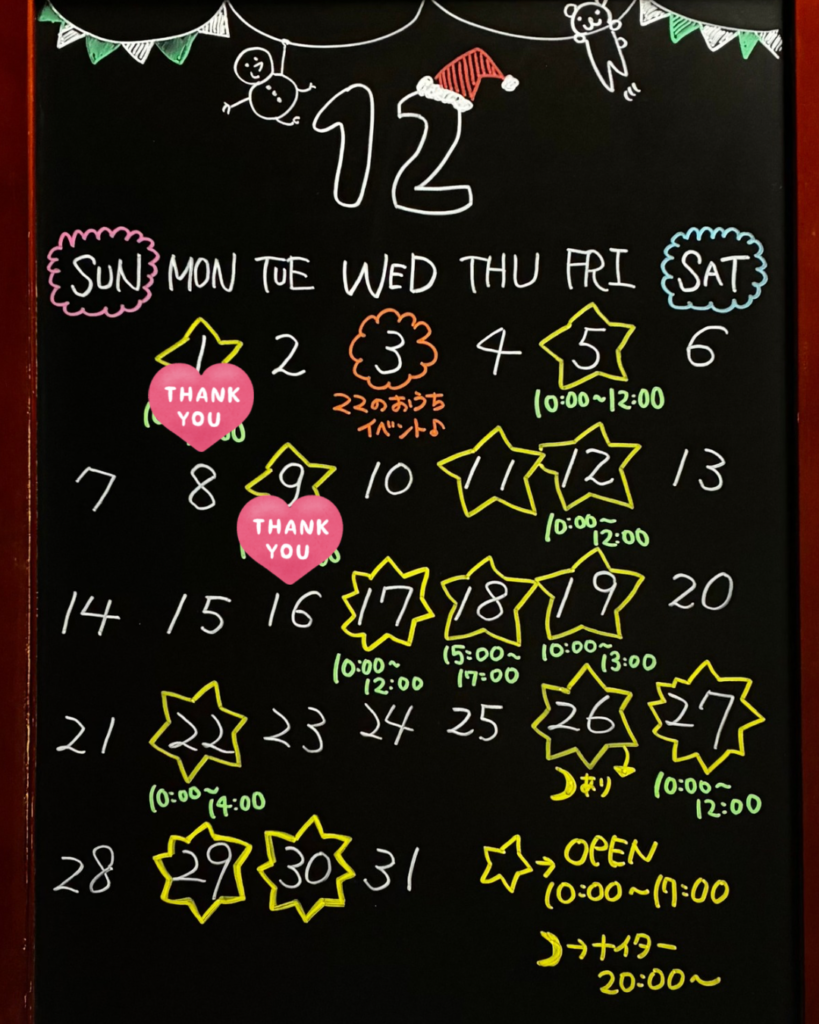 12
SUN MON TUE WED THU FRI SAT
1 2 3 4 5 6
THANK
YOU
22のおうち
イベント♪
10:00～12:00
7 8 9 10 11 12 13
THANK
YOU
10:00～
12:00
14 15 16 17 18 19 20
10:00～
12:00
15:00～
17:00
10:00～
13:00
21 22 23 24 25 26 27
10:00～
14:00
あり
10:00～
12:00
28 29 30 31
☆→OPEN
10:00～17:00
☽→ナイター
20:00～